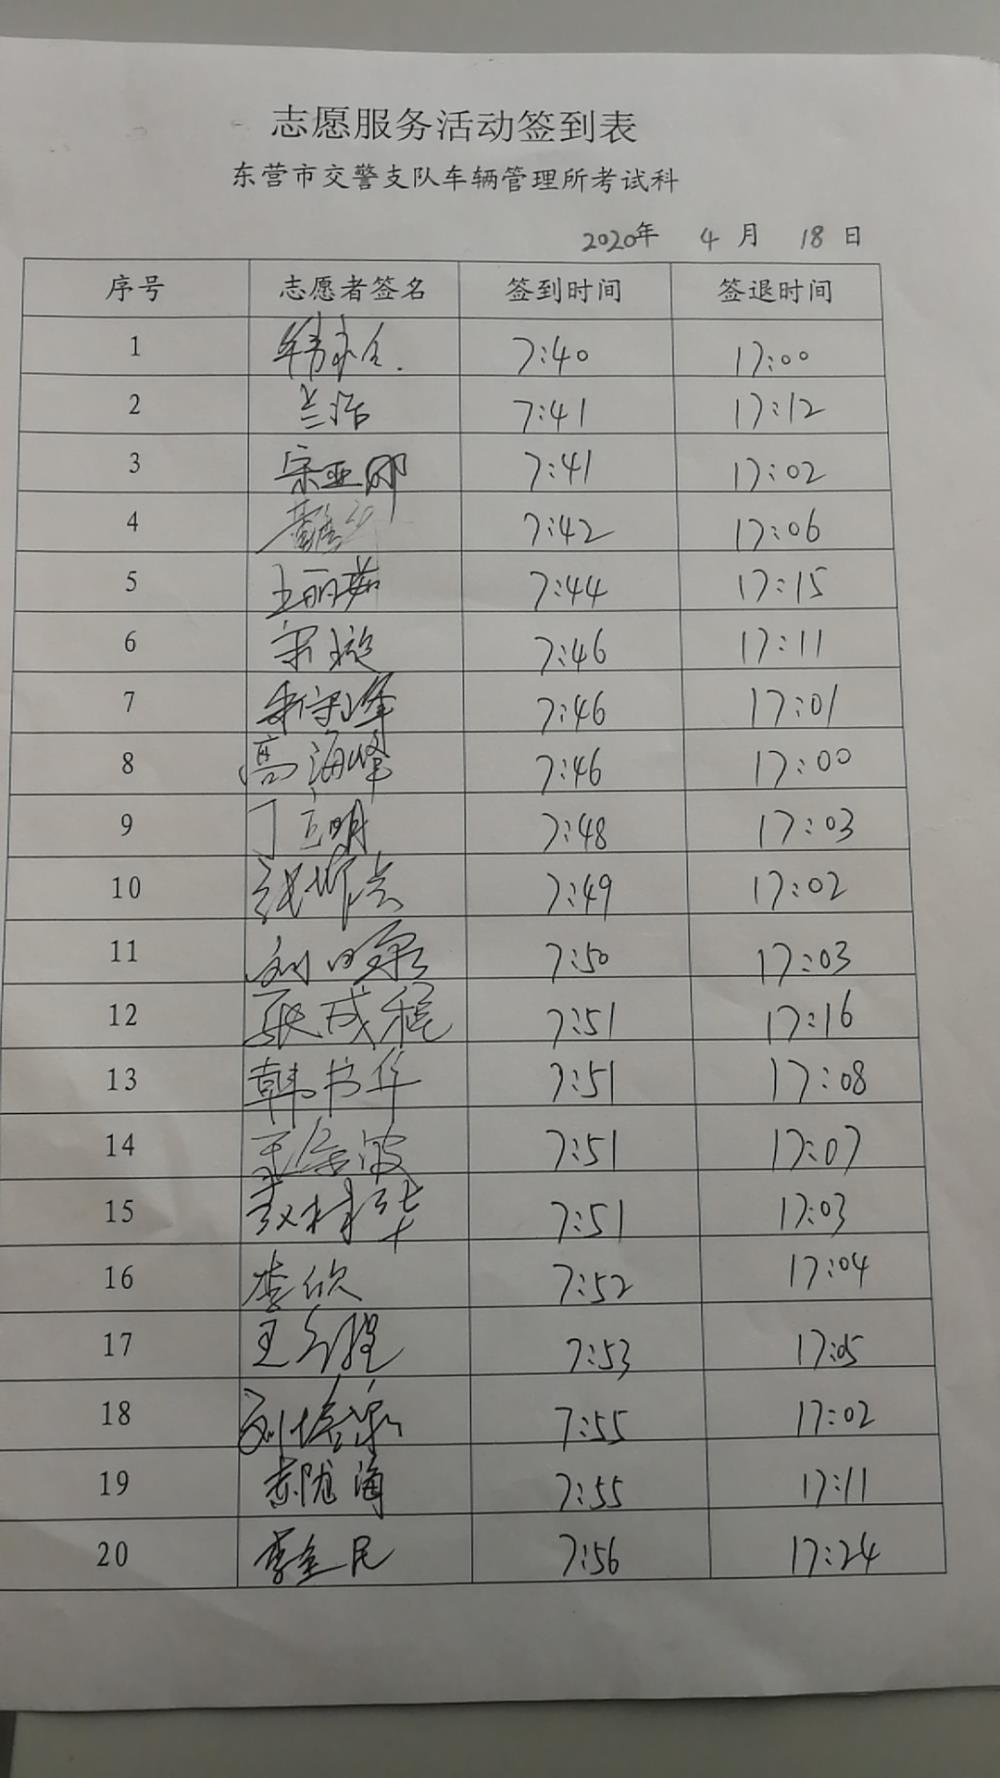 志愿服务活动签到表
东营市交警支队车辆管理所考试科
2020年 4 月 18 日
序号 志愿者签名 签到时间 签退时间
1 7:40 17:00
2 7:41 17:12
3 宋亚娜 7:41 17:02
4 7:42 17:06
5 王丽茹 7:44 17:15
6 宋璇 7:46 17:11
7 7:46 17:01
8 高海峰 7:46 17:00
9 丁立明 7:48 17:03
10 7:49 17:02
11 7:50 17:03
12 7:51 17:16
13 韩书华 7:51 17:08
14 7:51 17:07
15 7:51 17:03
16 李欣 7:52 17:04
17 7:53 17:05
18 7:55 17:02
19 7:55 17:11
20 李金民 7:56 17:24